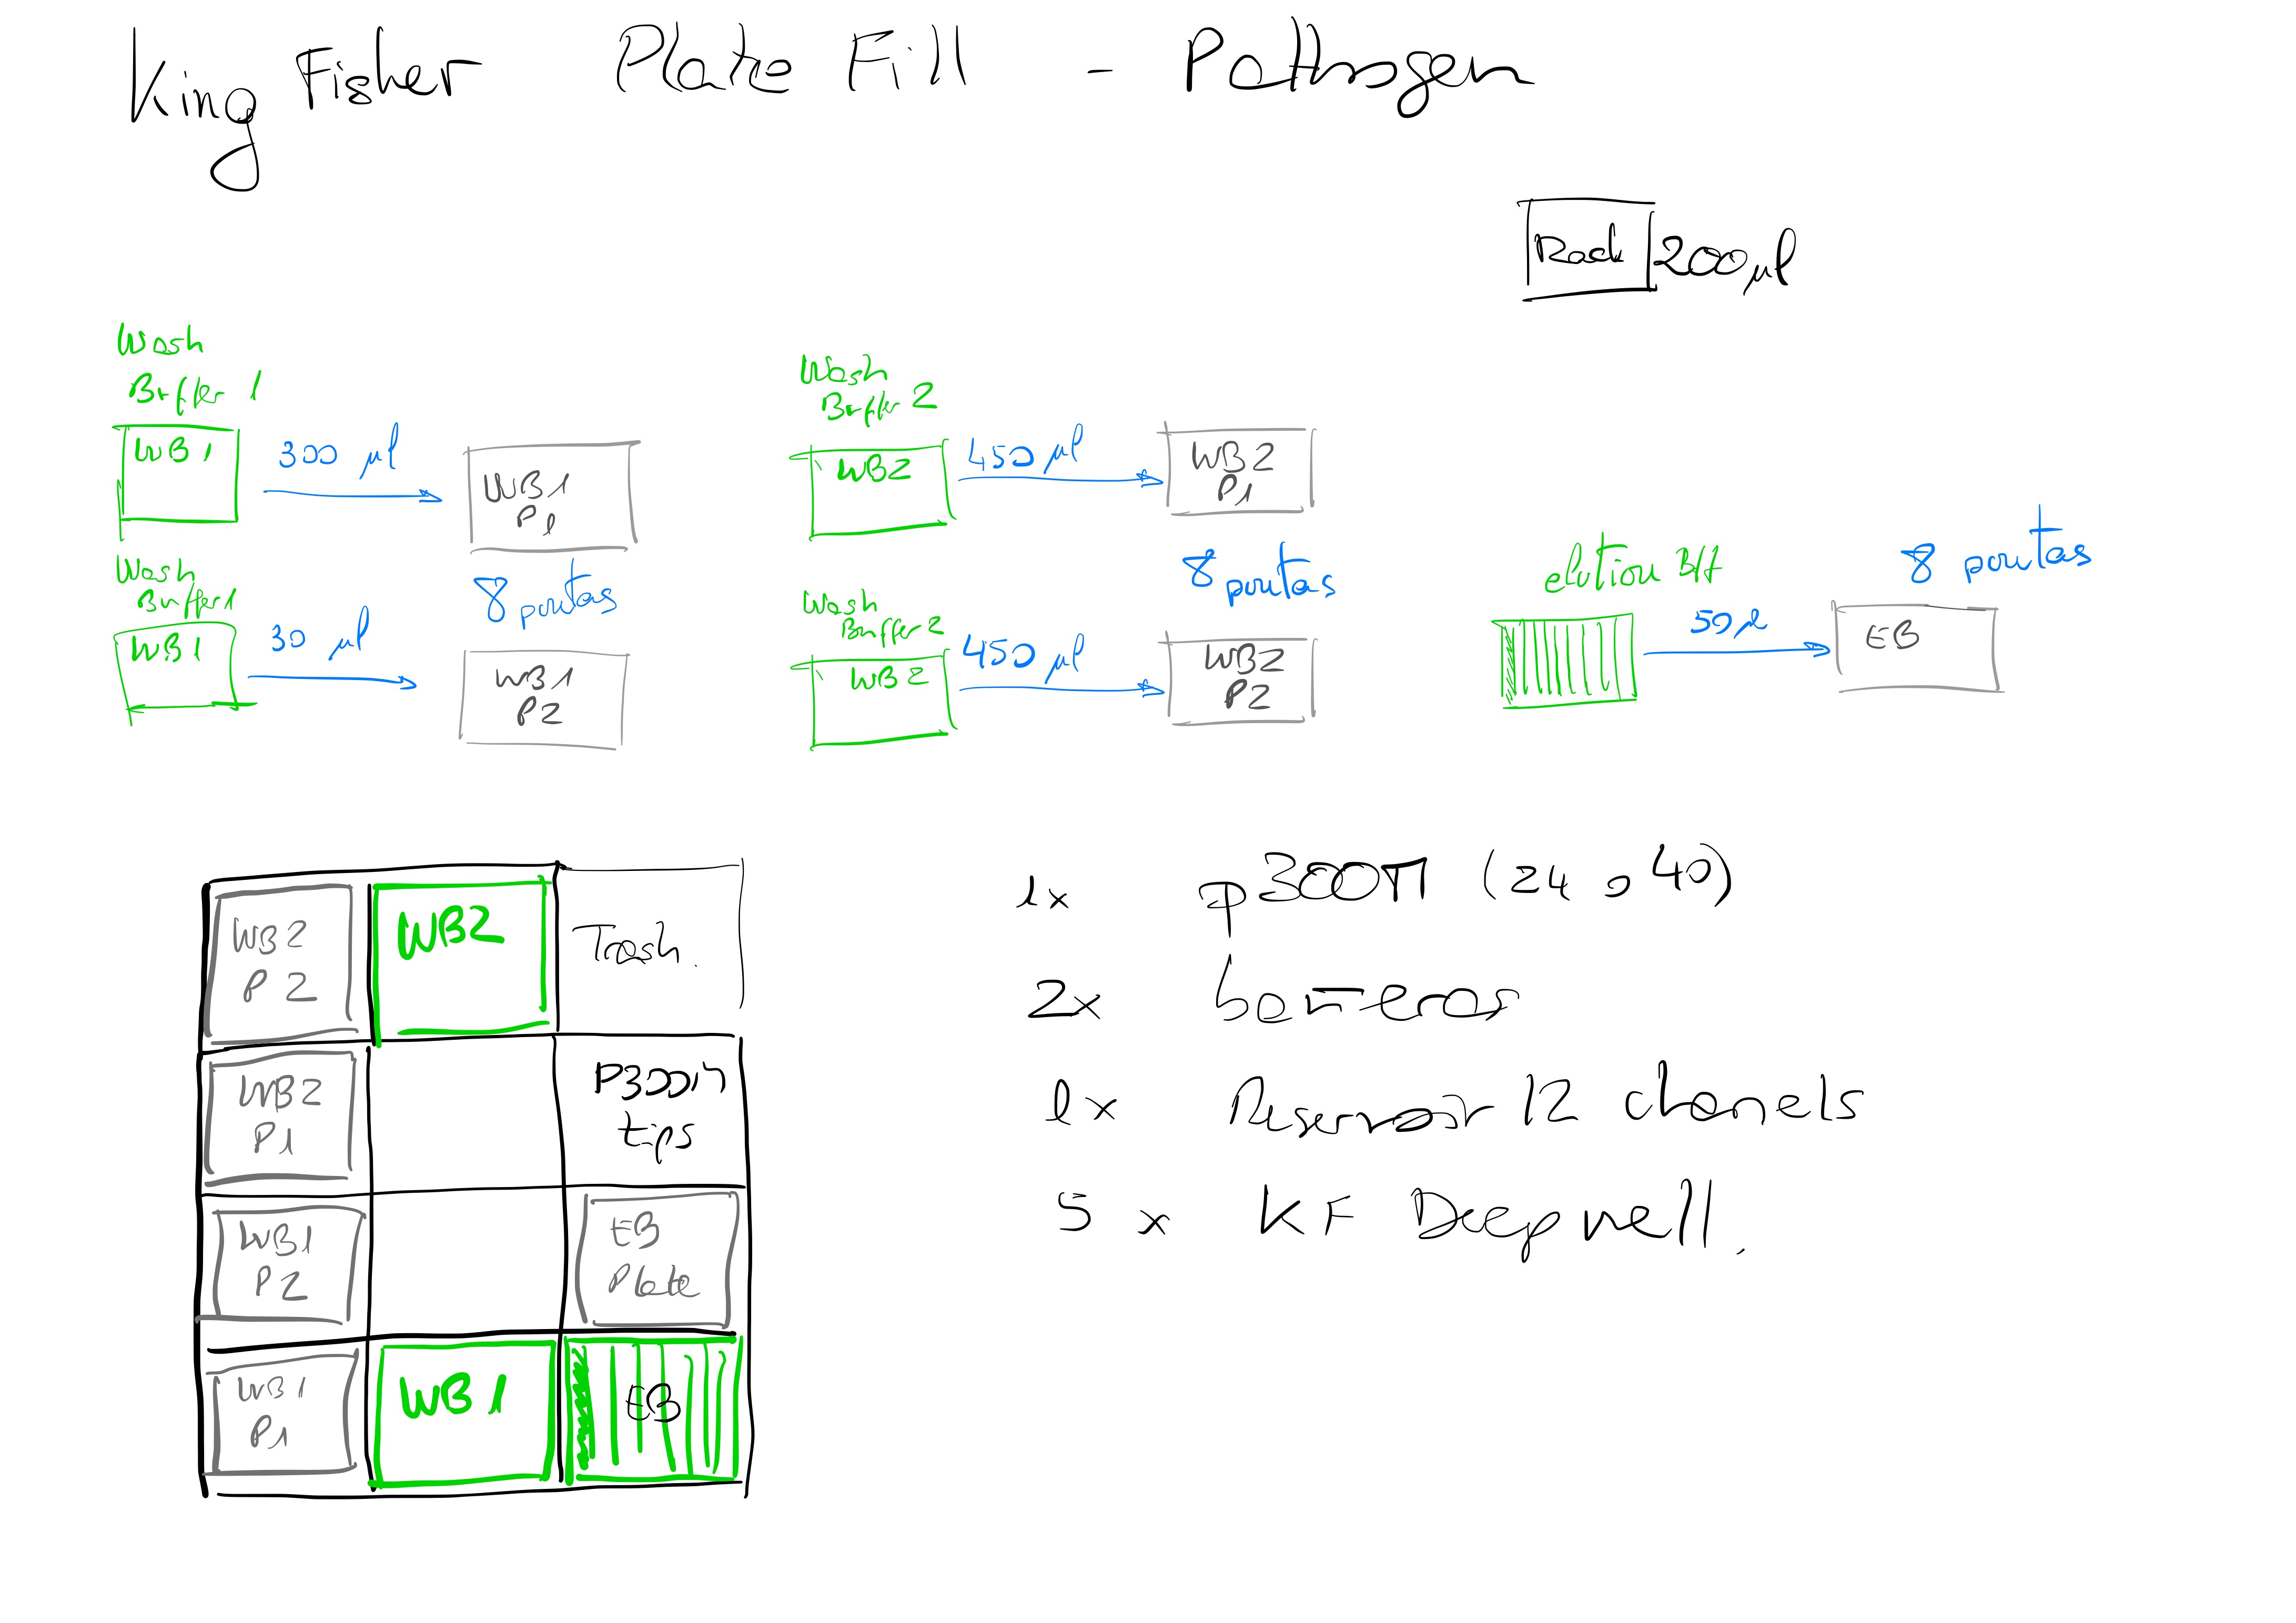 King Fisher Plate Fill - Pathogen
Rack 200 µl
Wash
Buffer 1
WB 1
300 µl
WB1
P1
Wash
Buffer 2
WB2
450 µl
WB2
P1
Wash
Buffer 1
WB1
30 µl
8 puntas
WB1
P2
Wash
Buffer 2
WB2
450 µl
8 puntas
WB2
P2
elution Bff
50 µl
8 puntas
EB
WB2
P2
WB2
Trash.
WB2
P1
P300M
tips
WB1
P2
EB
Plate
WB1
P1
WB1
EB
1x p300M (24 o 40)
2x
1x Reservoir 12 chanels
5 x KF Deepwell.